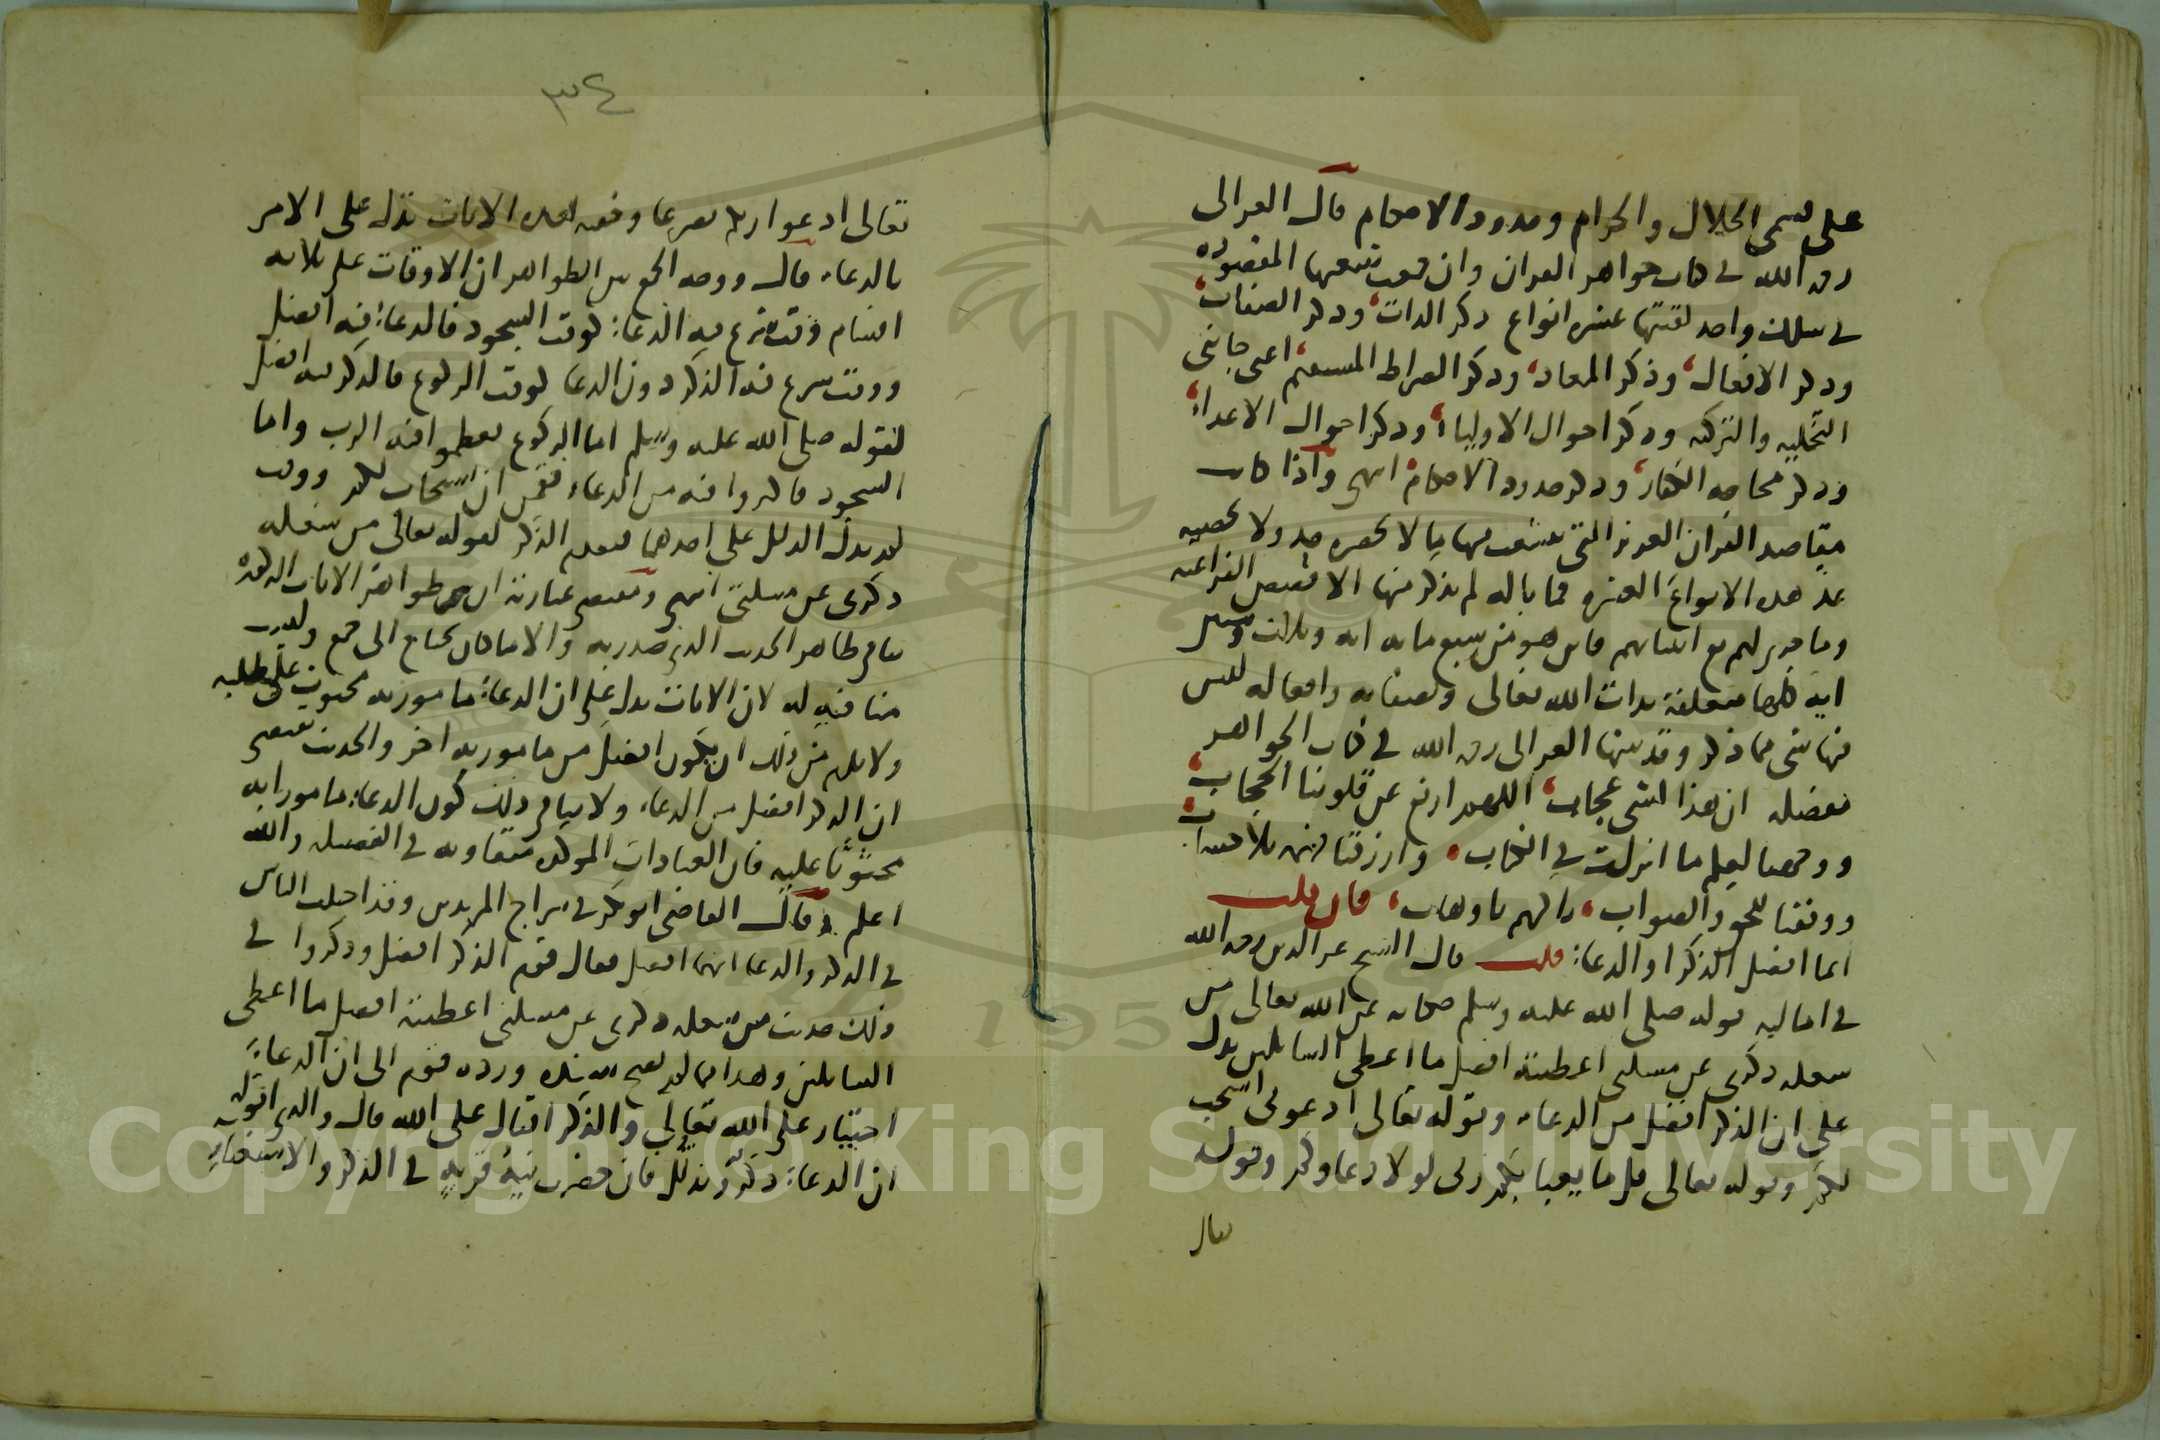 على قسمى الحلال والحرام وحدود الاحكام قال الغزالى
رحمه الله فى كتاب جواهر القران وان جمعت شعبها المقصوده
فى سلك واحد لقيتها عشره انواع ذكر الذات وذكر الصفات
وذكر الافعال وذكر المعاد وذكر الصراط المستقيم اعنى جانبى
التحليه والتزكيه وذكر احوال الاولياء وذكر احوال الاعداء
وذكر محاجه الكفار وذكر حدود الاحكام انتهى واذا كانت
مقاصد القران العزيز التى تتشعب منها ما لا يحصره حد ولا يحصيه
عد هذه الانواع العشره فما باله لم يذكر منها الا قصص الفراعنه
وما جرى لهم مع انبيائهم فاين هو من سبع مايه ايه وثلاث وستين
ايه كلها متعلقة بذات الله تعالى وصفاته وافعاله ليس
فيها شى مما ذكر وقد بينها الغزالى رحمه الله فى كتاب الجواهر
مفصله ان هذا لشى عجاب اللهم ارفع عن قلوبنا الحجاب
ووفقنا ليعلم ما انزلت فى الكتاب وارزقنا فيه بلا حساب
ووفقنا للحق والصواب يا وهاب فان قلت
ايما افضل الذكر او الدعاء قلت قال الشيخ عز الدين رحمه الله
فى اماليه قوله صلى الله عليه وسلم حكايه عن الله تعالى من
شغله ذكرى عن مسلتى اعطيته افضل ما اعطى السايلين يدل
على ان الذكر افضل من الدعاء وقوله تعالى ادعونى استجب
لكم وقوله تعالى قل ما يعبا بكم ربى لولا دعاوكم وقوله
تعالى
٣٤
تعالى ادعوا ربكم تضرعا وخفيه هذه الايات تدل على الامر
بالدعاء قال ووجه الجمع بين الظواهر ان الاوقات على ثلاثه
اقسام وقت شرع فيه الدعاء كوقت السجود فالدعاء فيه افضل
ووقت شرع فيه الذكر دون الدعا كوقت الركوع فالذكر فيه افضل
لقوله صلى الله عليه وسلم اما الركوع فعظموا فيه الرب واما
السجود فاكثروا فيه من الدعاء فقمن ان يستجاب لكم ووقت
لم يدل الدليل على احدهما فيقدم الذكر لقوله تعالى من شغله
ذكرى عن مسلتى انتهى ومقتضى عبارته ان ظواهر الايات المذكوره
ينافى ظاهر الحديث الذى صدر به والا ما كان يحتاج الى جمع وليست
منافيه له لان الايات تدل على ان الدعاء مامور به محبوب على طلبه
ولا يلزم من ذلك ان يكون افضل من مامور به اخر والحديث مقتضى
ان الذكر افضل من الدعاء ولا ينافى ذلك كون الدعاء مامورا به
محثوثا عليه فان العبادات الموكده متفاوته فى الفضيله والله
اعلم وقال القاضى ابو بكر فى سراج المريدين وقد اختلف الناس
فى الذكر والدعا ايهما افضل فقال قوم الذكر افضل وذكروا فى
ذلك حديث من شغله ذكرى عن مسلتى اعطيته افضل ما اعطى
السايلين وهذا مما لم يصح سنده ورده قوم الى ان الدعاء
اختيار على الله تعالى والذكر اقبال على الله قال والذى اقوله
ان الدعاء ذكر وتذلل فان حضرت نية قربه فى الذكر والاستغفار
Copyright © King Saud University
195